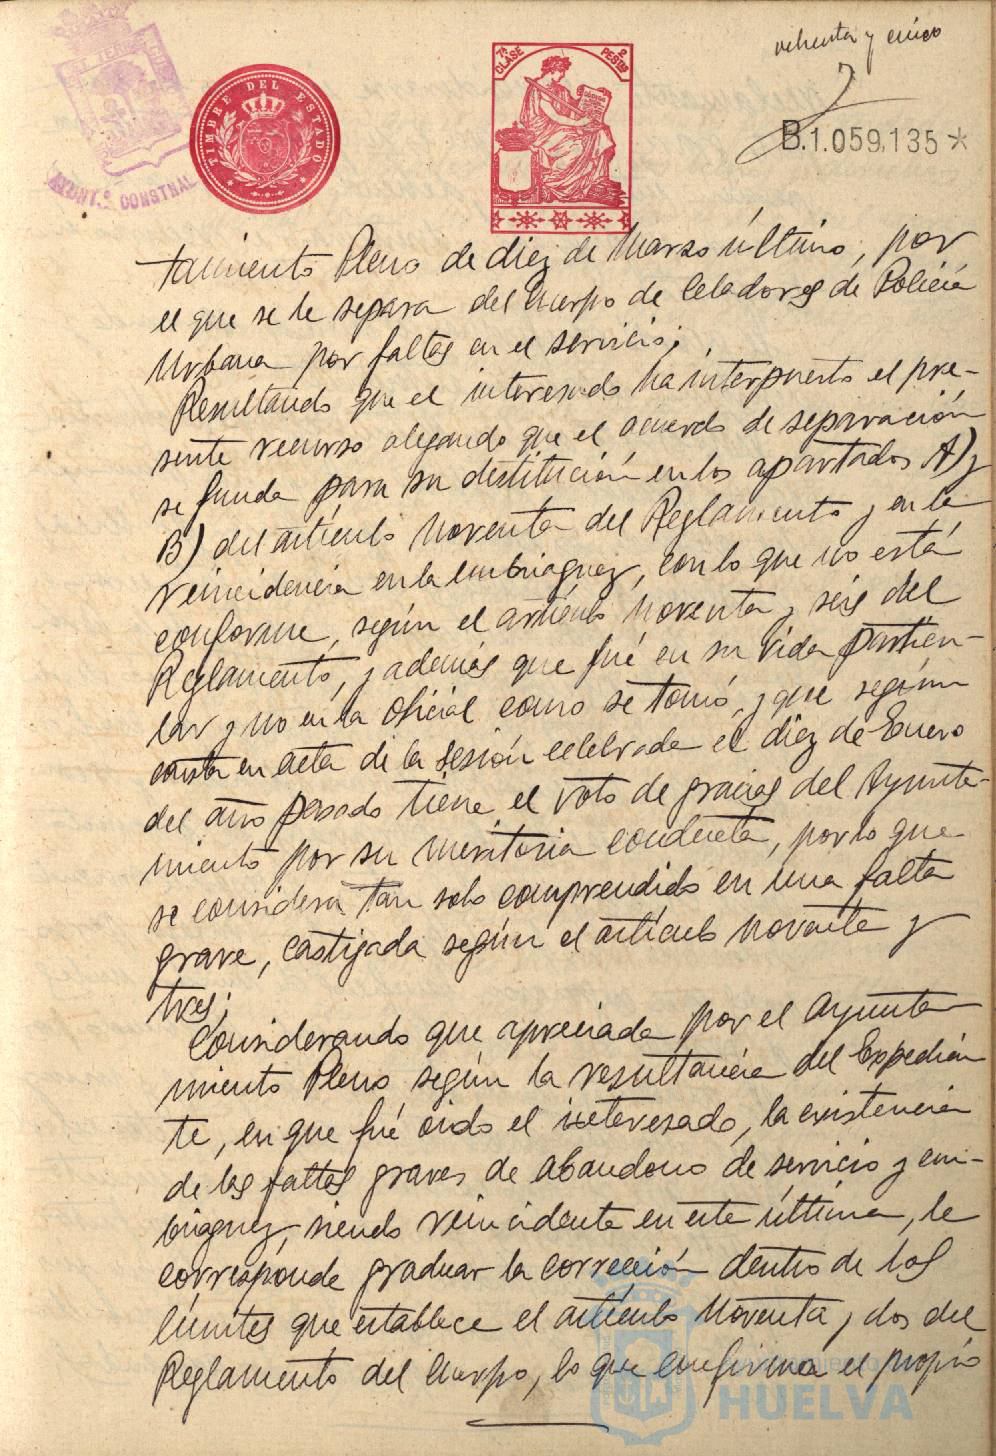 ochenta y cinco
TIMBRE DEL ESTADO
7ª CLASE
2 PESTAS
B.1.059,135*
AYUNTº CONSTNAL
tamiento Pleno de diez de Marzo último, por
el que se le separa del Cuerpo de Celadores de Policía
Urbana por faltas en el servicio;
Resultando que el interesado ha interpuesto el pre-
sente recurso alegando que el acuerdo de separación
se funda para su destitución en los apartados A) y
B) del artículo noventa del Reglamento y en la
reincidencia en la embriaguez, con lo que no está
conforme, según el artículo noventa y seis del
Reglamento, y además que fué en su vida particu-
lar y no en la oficial como se tomó, y que según
consta en acta de la sesión celebrada el diez de Enero
del año pasado tiene el voto de gracias del Ayunta-
miento por su meritoria conducta, por lo que
se considera tan solo comprendido en una falta
grave, castigada según el artículo noventa y
tres;
Considerando que apreciada por el Ayunta
miento Pleno según la resultancia del Expedien
te, en que fué oido el interesado, la existencia
de las faltas graves de abandono de servicio y em-
briaguez, siendo reincidente en esta última, le
corresponde graduar la corrección dentro de los
límites que establece el artículo noventa y dos del
Reglamento del Cuerpo, lo que confirma el propio
Ayuntamiento
HUELVA